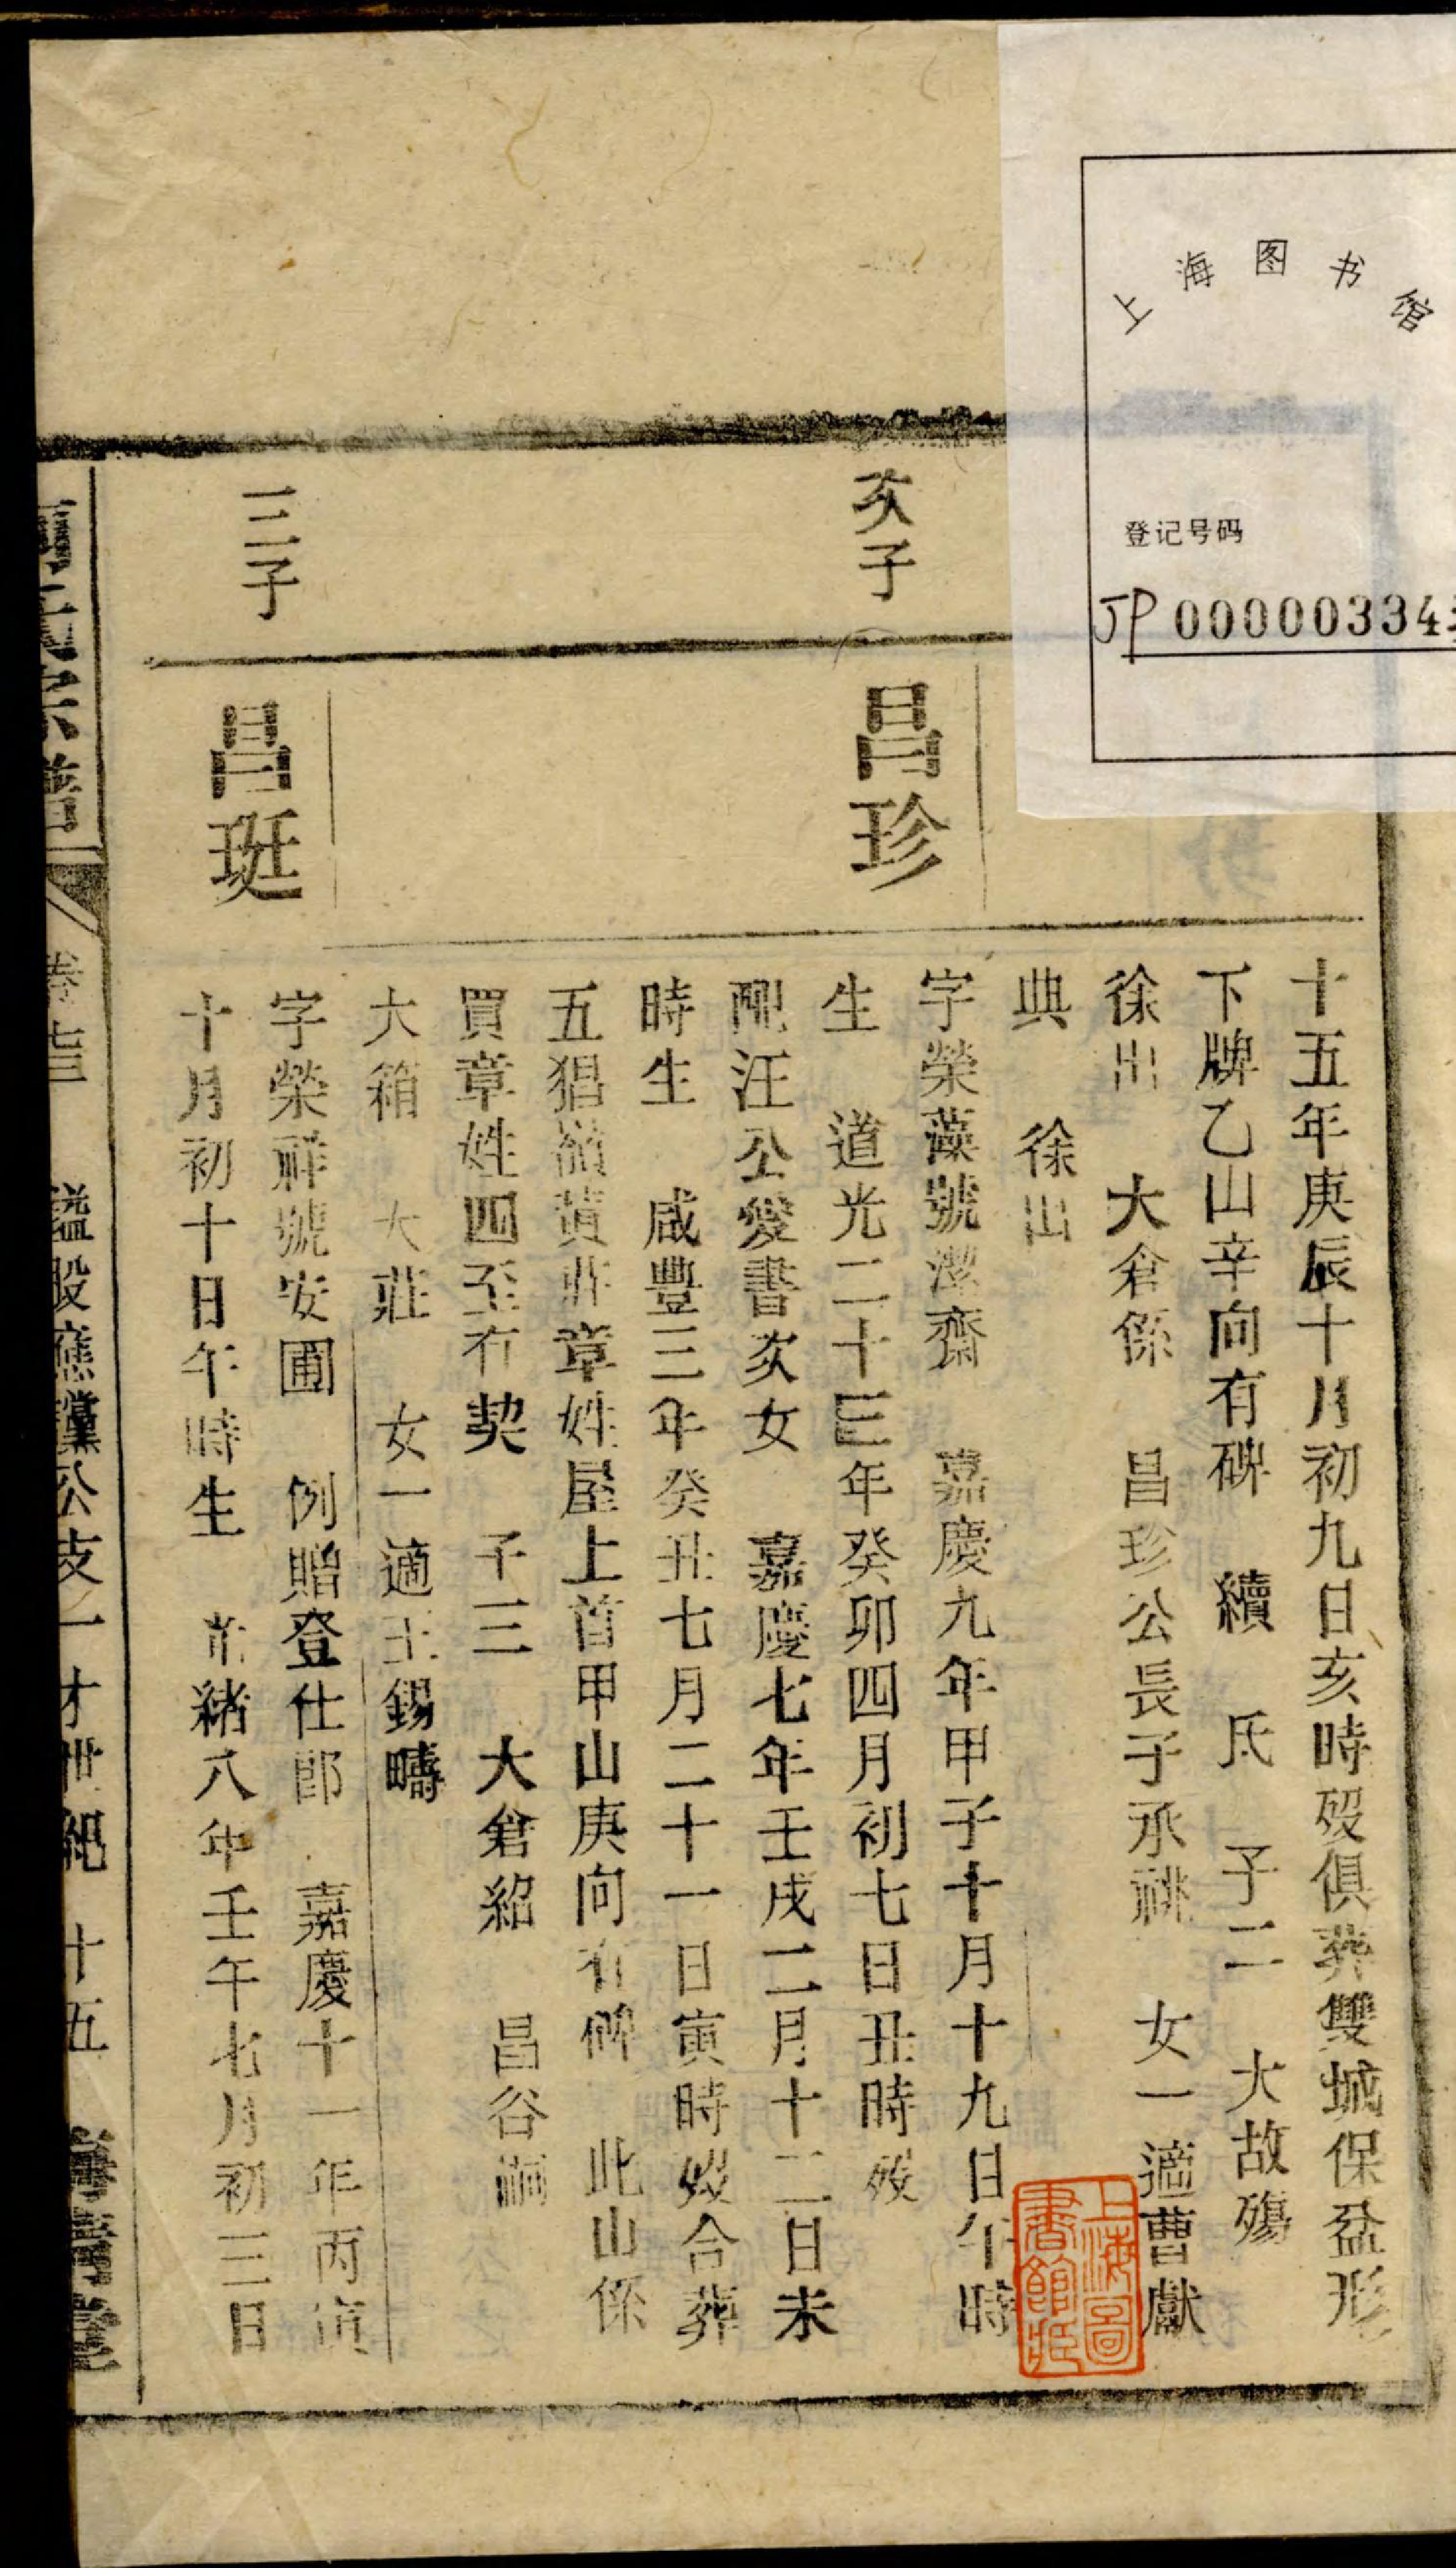 上海图书馆
登记号码
JP 00000334
十五年庚辰十月初九日亥時歿俱葬雙城保盆形
下牌乙山辛向有碑　續　氏　子二　大故殤
徐出　大倉係　昌珍公長子承祧　女一適曹獻
典　徐出
次子
昌珍
字榮藻號潔齋　嘉慶九年甲子十月十九日午時
生　道光二十三年癸卯四月初七日丑時歿
配汪公愛書次女　嘉慶七年壬戌二月十二日未
時生　咸豐三年癸丑七月二十一日寅時歿合葬
五猖嶺黃莊章姓屋上首甲山庚向有碑　此山係
買章姓四至有契　子三　大倉紹　昌谷嗣
大箱　大莊　女一適王錫疇
三子
昌珽
字榮祥號安圃　例贈登仕郎　嘉慶十一年丙寅
十月初十日午時生　光緒八年壬午七月初三日
宗譜　卷　公支　世紀　十五　堂
上海圖書館藏